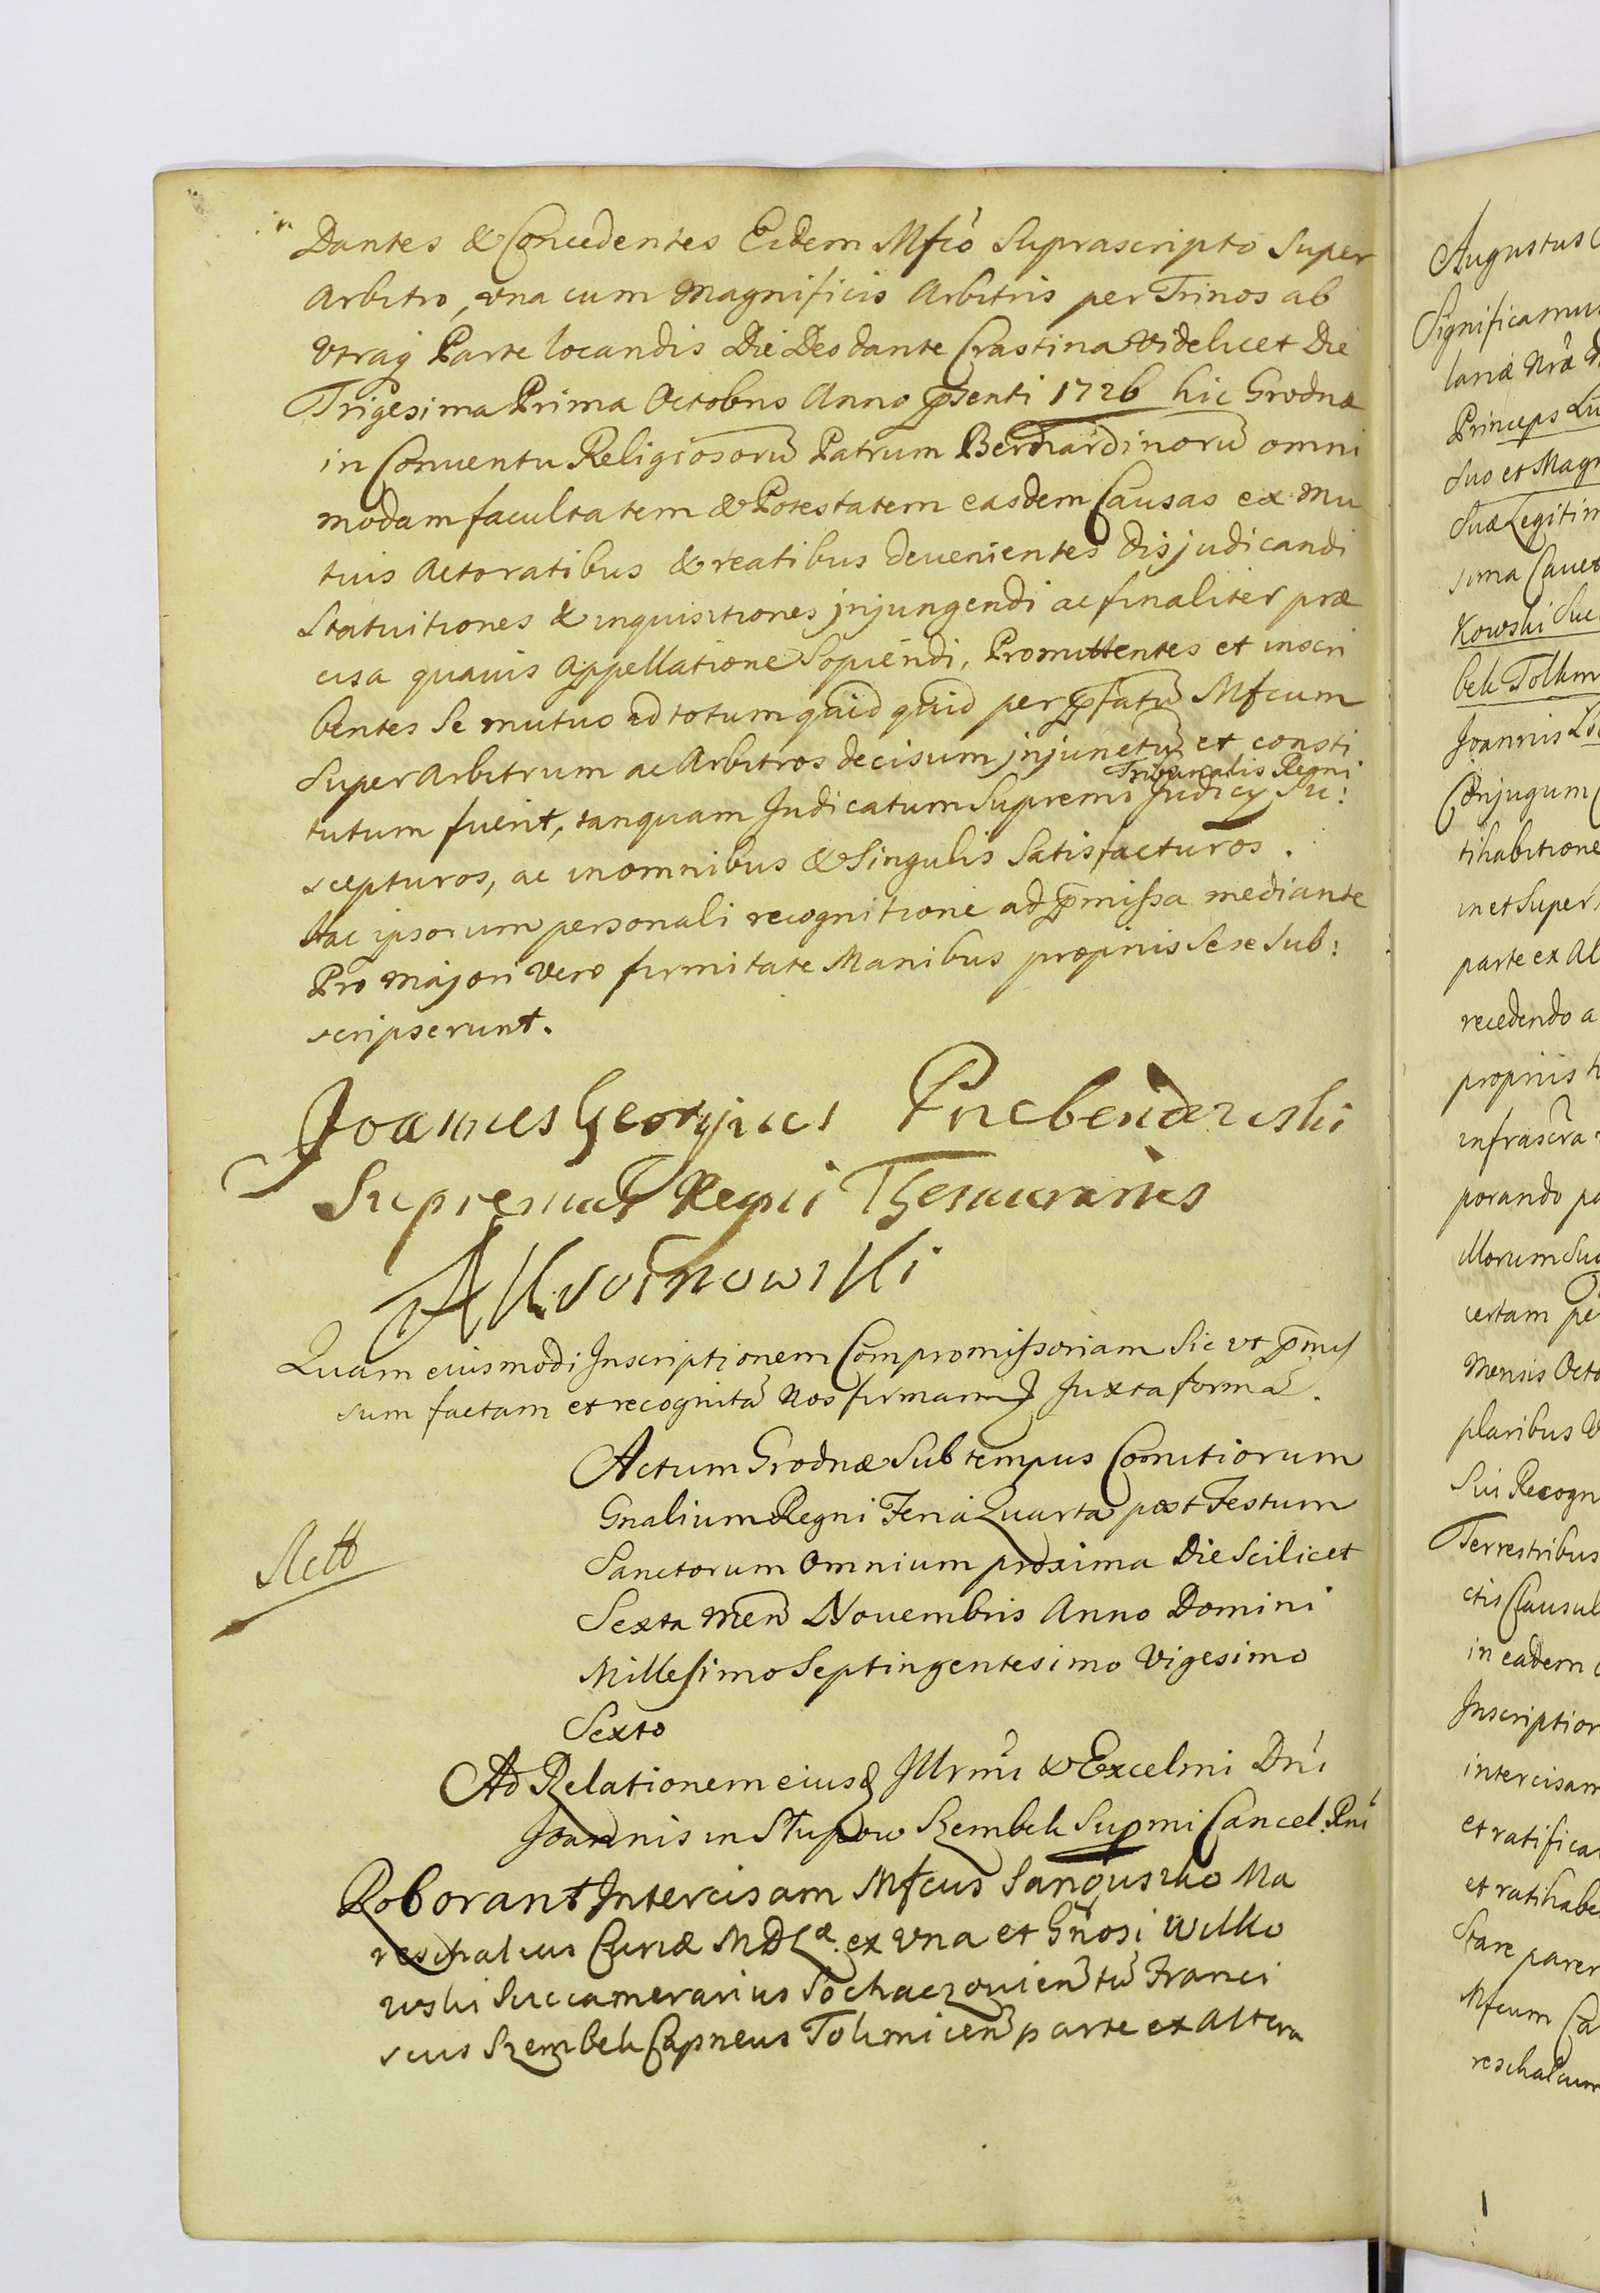 Dantes & Concedentes Eidem Mfcó Suprascripto Super
Arbitro, vna cum Magnificis Arbitris per Trinos ab
Vtraq Parte locandis Die Deo dante Crastina Videlicet Die
Trigesima Prima Octobris Anno pñsenti 1726 hic Grodnæ
in Conuentu Religiosorũ Patrum Bernardinorũ omni
modam facultatem & Potestatem easdem Causas ex Mu
tuis Actoratibus & reatibus deuenientes disjudicandi
Statuitiones & inquisitiones jnjungendi ac finaliter præ
cisa quauis Appellatione Sopiendi, Promittentes et inscri
bentes Se mutuo ad totum quid quid per pfatũ Mfcum
Super Arbitrum ac Arbitros decisum jnjunctũ et consti
Tribunalis Regni
tutum fuerit, tanquam Judicatum Supremi Judicy Su:
scepturos, ac in omnibus & Singulis Satisfacturos.
Hac ipsorum personali recognitione ad pmissa mediante
Pro majori Vero firmitate Manibus proprijs Sese Sub:
scripserunt.
Joannes Georgius Przebendowski
Supremus Regni Thesaurarius
Quam eiusmodi Inscriptionem Compromissoriam Sic vt pmis
sum factam et recognitã Nos firmam Juxta formã.
Actum Grodnæ Sub tempus Comitiorum
Gnalium Regni Feria Quarta post Festum
Sanctorum Omnium proxima Die Scilicet
Sexta Men Nouembris Anno Domini
Millesimo Septingentesimo Vigesimo
Sexto
Ad Relationem eiusd Jllrmi & Excelmi Dni
Joannis in Słupow Szembek Supmi Cancel. Rni
Roborant Intercisam Mfcus Sanguszko Ma
reschalcus Curiæ MDLæ. ex vna et Gñosi Wilko
wski Succamerarius Sochaczouien tũ Franci
scus Szembek Capneus Tolkmicen parte ex Altera
Augustus
Significamus
lariæ Nræ
Princeps Lu
Suo et Magn
Suæ Legitim
sima Cauet
Kowski Suc
bek Tolkm
Joannis
Conjugum
tihabitione
in et Super
parte ex Al
recedendo a
proprijs
infrascra
porando pa
Illorum Suc
certam pe
Mensis Octo
pluribus V
Sui Recogn
Terrestribus
ctis Clausul
in eadem
Inscription
intercisam
et ratifica
et ratihabe
Stare parer
Mfcum Ca
reschalcum